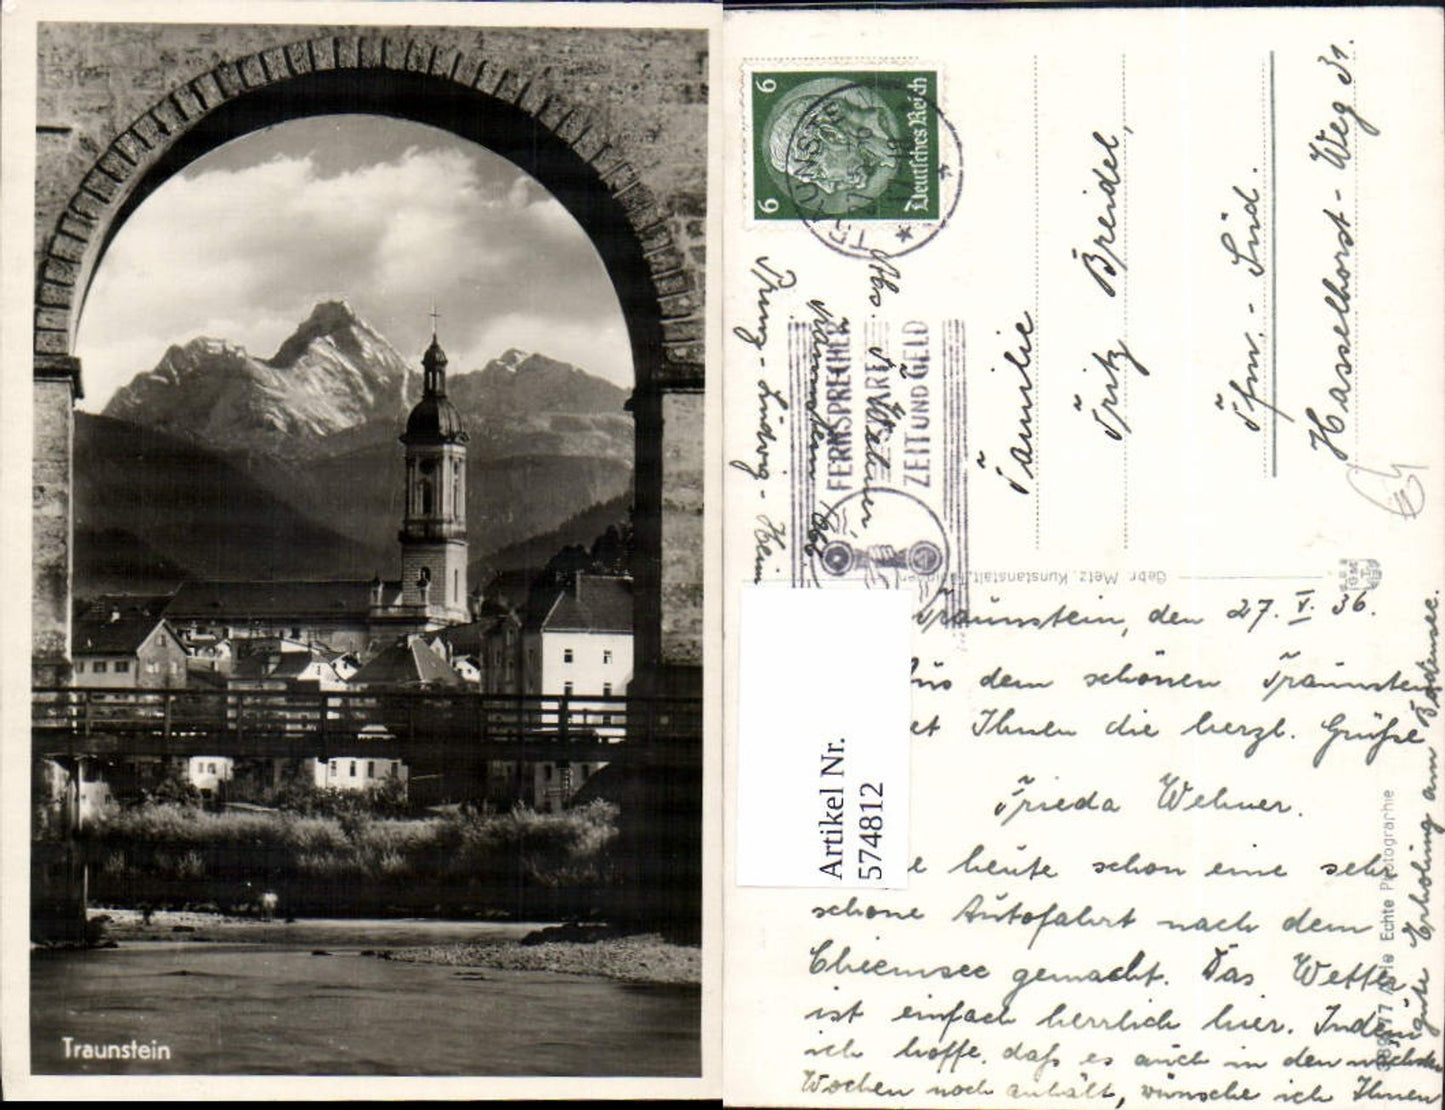 Traunstein
6
6
Deutsches Reich
TRAUNSTE
27
FERNSPRECHER
SPART
ZEIT UND GELD
Abs. F. Wehner,
Traunstein Obb.
Prinz-Ludwig-Heim
Familie
Fritz Breidel,
Ffm. - Süd.
Hasselhorst-Weg 31.
Gebr. Metz, Kunstanstalt,
Artikel Nr.
574812
Traunstein, den 27. V. 36.
Aus dem schönen Traunstein
et Ihnen die herzl. Grüße
Frieda Wehner.
e heute schon eine sehr
schöne Autofahrt nach dem
Chiemsee gemacht. Das Wetter
ist einfach herrlich hier. Indem
ich hoffe, daß es auch in den nächsten
Wochen noch anhält, wünsche ich Ihnen
gute Erholung am Bodensee.
Echte Photographie